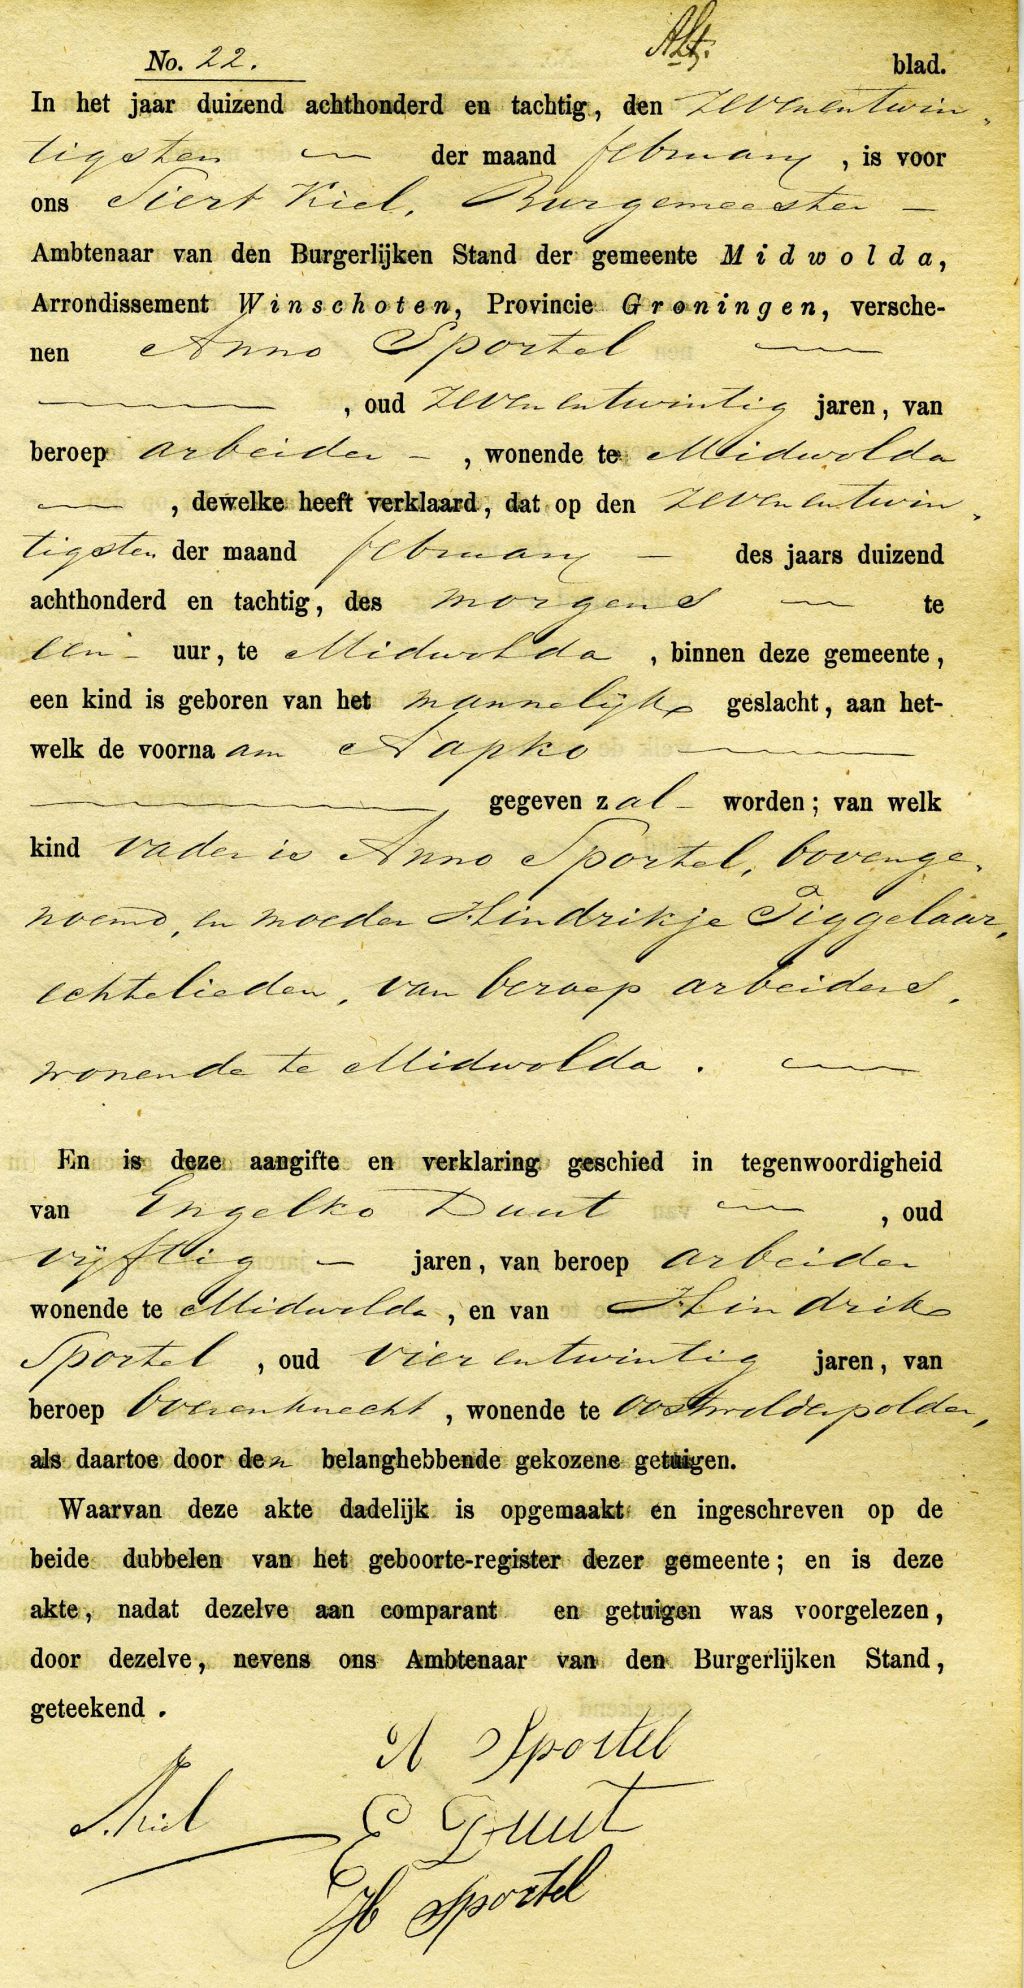 No. 22. blad.
In het jaar duizend achthonderd en tachtig, den zevenentwin-
tigsten — der maand february, is voor
ons Siert Kiel, Burgemeester —
Ambtenaar van den Burgerlijken Stand der gemeente Midwolda,
Arrondissement Winschoten, Provincie Groningen, versche-
nen Anno Sportel —
—, oud zevenentwintig jaren, van
beroep arbeider —, wonende te Midwolda
—, dewelke heeft verklaard, dat op den zevenentwin-
tigsten der maand february — des jaars duizend
achthonderd en tachtig, des morgens — te
een — uur, te Midwolda, binnen deze gemeente,
een kind is geboren van het mannelijk geslacht, aan het-
welk de voornaam Napko —
— gegeven zal — worden; van welk
kind vader is Anno Sportel, bovenge-
noemd, en moeder Hindrikje Tiggelaar,
echtelieden, van beroep arbeiders,
wonende te Midwolda. —
En is deze aangifte en verklaring geschied in tegenwoordigheid
van Engelko Duut —, oud
vijftig — jaren, van beroep arbeider
wonende te Midwolda, en van Hindrik
Sportel, oud vierentwintig jaren, van
beroep boerenknecht, wonende te Oostwolderpolder,
als daartoe door den belanghebbende gekozene getuigen.
Waarvan deze akte dadelijk is opgemaakt en ingeschreven op de
beide dubbelen van het geboorte-register dezer gemeente; en is deze
akte, nadat dezelve aan comparant en getuigen was voorgelezen,
door dezelve, nevens ons Ambtenaar van den Burgerlijken Stand,
geteekend.
A Sportel
S. Kiel
E Duut
H Sportel